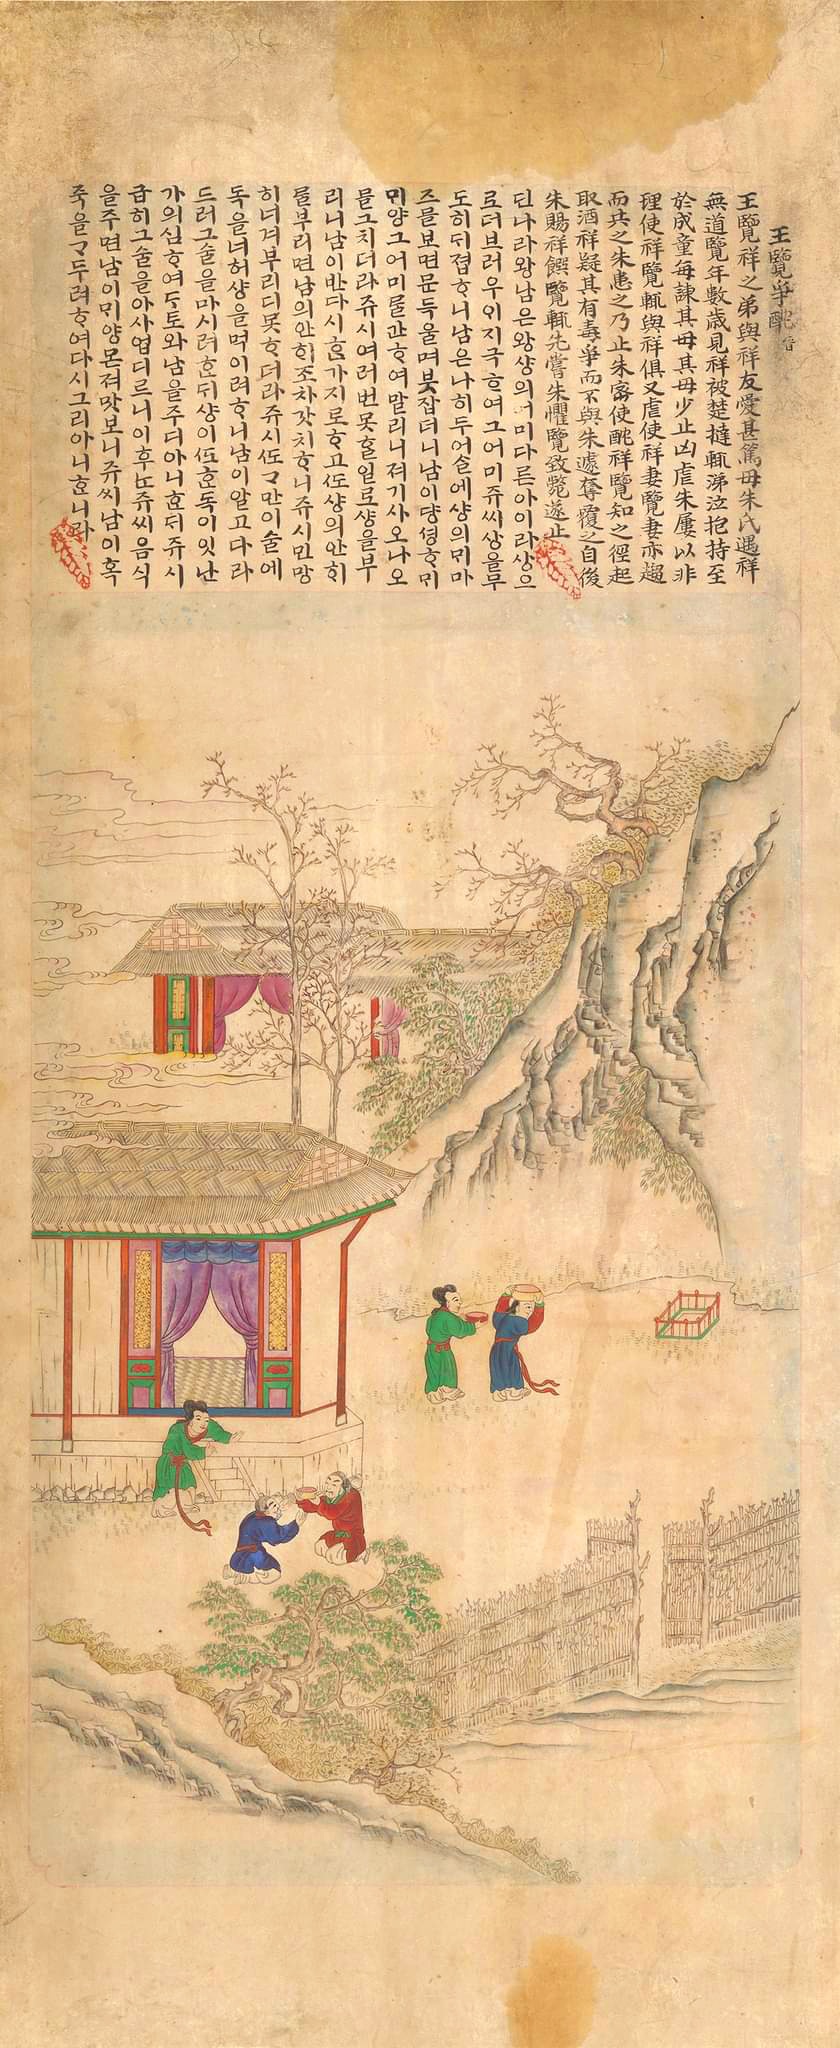 王覽爭酖 晉
王覽祥之弟與祥友愛甚篤母朱氏遇祥
無道覽年數歲見祥被楚撻輒涕泣抱持至
於成童每諫其母其母少止凶虐朱屢以非
理使祥覽輒與祥俱又虐使祥妻覽妻亦趨
而共之朱患之乃止朱密使酖祥覽知之徑起
取酒祥疑其有毒爭而不與朱遽奪覆之自後
朱賜祥饌覽輒先嘗朱懼覽致斃遂止
딘나라왕남은왕샹의어미다른아이라샹으
로더브러우의지극ᄒᆞ여그어미쥬씨샹을무
도히ᄃᆡ졉ᄒᆞ니남은나히두어솔에샹의ᄆᆡ마
즈믈보면문득울며붓잡더니남이댱셩ᄒᆞᄆᆡ
ᄆᆡ양그어미ᄅᆞᆯ간ᄒᆞ여말리니져기사오나오
믈그치더라쥬시여러번못ᄒᆞᆯ일로샹을부
리니남이반다시ᄒᆞᆫ가지로ᄒᆞ고ᄯᅩ샹의안ᄒᆡ
ᄅᆞᆯ부리면남의안ᄒᆡ조차갓치ᄒᆞ니쥬시민망
히너겨부리디못ᄒᆞ더라쥬시ᄯᅩᄀᆞ만이술에
독을너허샹을먹이려ᄒᆞ니남이알고다라
드러그술을마시려ᄒᆞᄃᆡ샹이ᄯᅩᄒᆞᆫ독이잇난
가의심ᄒᆞ여ᄃᆞ토와남을주디아니ᄒᆞᆫᄃᆡ쥬시
급히그술을아사업디르니이후ᄂᆞᆫ쥬씨음식
을주면남이ᄆᆡ양몬져맛보니쥬씨남이혹
죽을ᄀᆞ두려ᄒᆞ여다시그리아니ᄒᆞ니라